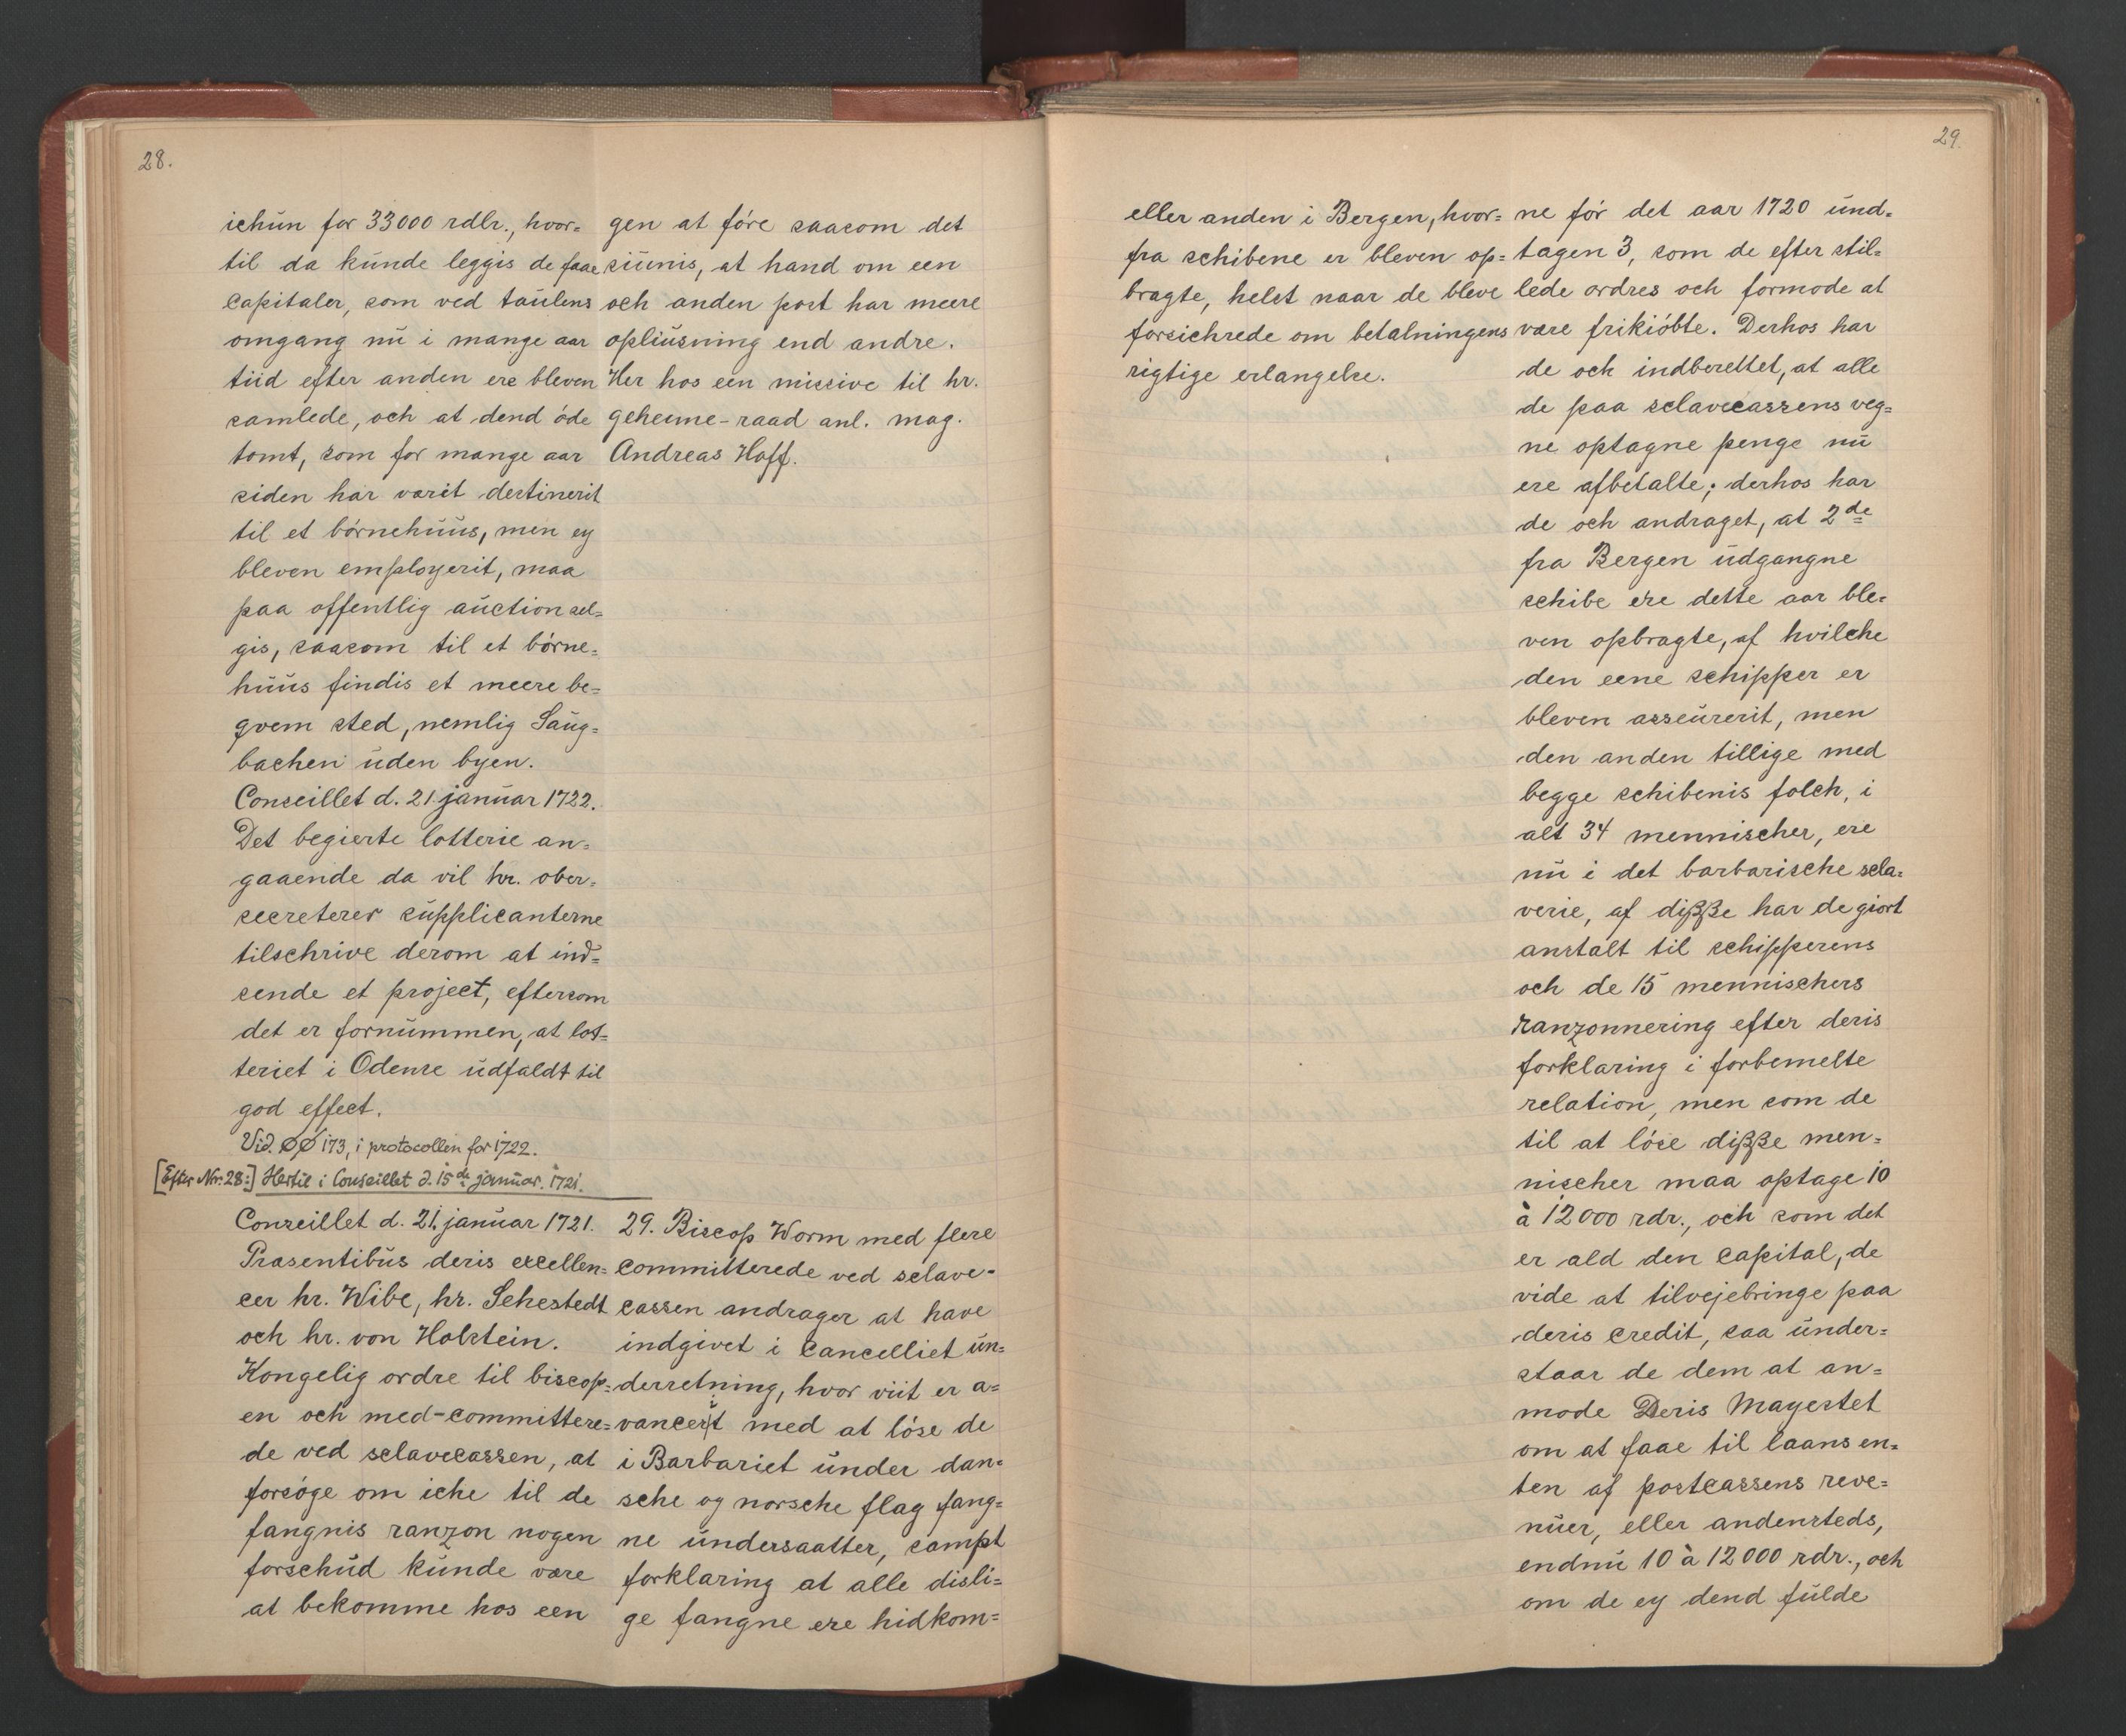 28.
ichun for 33000 rdlr., hvor=
til da kunde leggis de faae
capitaler, som ved taulens
omgang nu i mange aar
tiid efter anden ere bleven
samlede, och at dend öde
tomt, som for mange aar
siden har varit destinerit
til et börnehuus, men ey
bleven employerit, maa
paa offentlig auction sel=
gis, saasom til et börne=
huus findis et meere be=
qvem sted, nemlig Saug=
bachen uden byen.
Conseillet d. 21. januar 1722.
Det begierte lotterie an=
gaaende da vil hr. ober=
secreterer supplicanterne
tilschrive derom at ind=
sende et project, eftersom
det er fornummen, at lot=
teriet i Odense udfaldt til
god effect.
Vid. ØØ 173, i protocollen for 1722.
[Efter Nr. 28:] Hertil i Conseillet d. 15de januar. 1721.
Conseillet d. 21. januar 1721.
Præsentibus deris excellen=
cer hr. Wibe, hr. Sehestedt
och hr. von Holstein.
Kongelig ordre til biscop=
en och med-committere=
de ved sclavecassen, at
forsöge om iche til de
fangnis ranzon nogen
forschud kunde være
at bekomme hos een
gen at före saasom det
siunis, at hand om een
och anden post har meere
opliusning end andre.
Her hos een missive til hr.
geheime-raad anl. mag.
Andreas Hoff.
29. Biscop Worm med flere
committerede ved sclave=
cassen andrager at have
indgivet i cancelliet un=
derretning, hvor viit er a=
vancerit med at löse de
i Barbariet under dan=
sche og norsche flag fang=
ne undersaatter, sampt
forklaring at alle disli=
ge fangne ere hidkom=
29.
eller anden i Bergen, hvor=
fra schibene er bleven op=
bragte, helst naar de bleve
forsichrede om betalningens
rigtige erlangelse.
ne för det aar 1720 und=
tagen 3, som de efter stil=
lede ordres och formode at
være frikiöbte. Derhos har
de och indberettet, at alle
de paa sclavecassens veg=
ne optagne penge nu
ere afbetalte; derhos har
de och andraget, at 2de
fra Bergen udgangne
schibe ere dette aar ble=
ven opbragte, af hvilche
den eene schipper er
bleven asseurerit, men
den anden tillige med
begge schibenis folch, i
alt 34 mennischer, ere
nu i det barbarische scla=
verie, af dißße har de giort
anstalt til schipperens
och de 15 mennischers
ranzonnering efter deris
forklaring i forbemelte
relation, men som de
til at löse dißße men=
nischer maa optage 10
à 12000 rdr., och som det
er ald den capital, de
vide at tilvejebringe paa
deris credit, saa under=
staar de dem at an=
mode Deris Mayestet
om at faae til laans en=
ten af postcassens reve=
nuer, eller andensteds,
endnu 10 à 12000 rdr., och
om de ey dend fulde